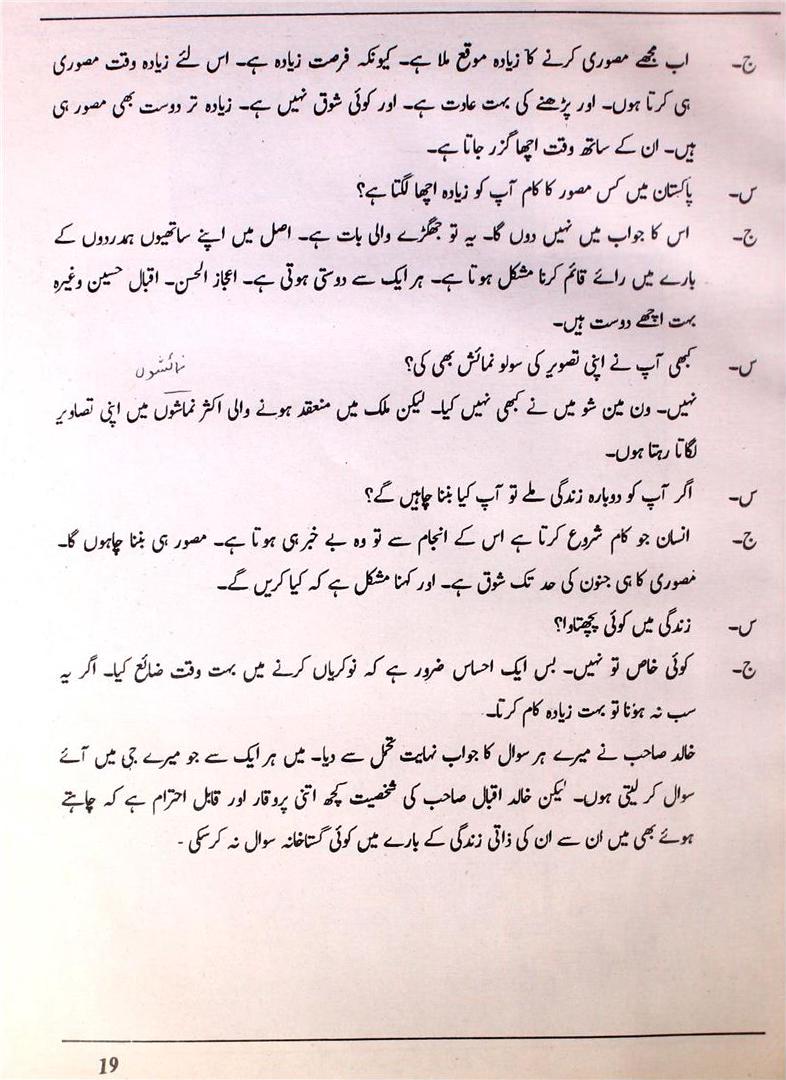 ج۔ اب مجھے مصوری کرنے کا زیادہ موقع ملا ہے۔ کیونکہ فرصت زیادہ ہے۔ اس لئے زیادہ وقت مصوری
ہی کرتا ہوں۔ اور پڑھنے کی بہت عادت ہے۔ اور کوئی شوق نہیں ہے۔ زیادہ تر دوست بھی مصور ہی
ہیں۔ ان کے ساتھ وقت اچھا گزر جاتا ہے۔
س۔ پاکستان میں کس مصور کا کام آپ کو زیادہ اچھا لگتا ہے؟
ج۔ اس کا جواب میں نہیں دوں گا۔ یہ تو جھگڑے والی بات ہے۔ اصل میں اپنے ساتھیوں ہمدردوں کے
بارے میں رائے قائم کرنا مشکل ہوتا ہے۔ ہر ایک سے دوستی ہوتی ہے۔ اعجاز الحسن۔ اقبال حسین وغیرہ
بہت اچھے دوست ہیں۔
س۔ کبھی آپ نے اپنی تصویر کی سولو نمائش بھی کی؟
نمائشوں
نہیں۔ ون مین شو میں نے کبھی نہیں کیا۔ لیکن ملک میں منعقد ہونے والی اکثر نماشوں میں اپنی تصاویر
لگاتا رہتا ہوں۔
س۔ اگر آپ کو دوبارہ زندگی ملے تو آپ کیا بننا چاہیں گے؟
ج۔ انسان جو کام شروع کرتا ہے اس کے انجام سے تو وہ بے خبر ہی ہوتا ہے۔ مصور ہی بننا چاہوں گا۔
مصوری کا ہی جنون کی حد تک شوق ہے۔ اور کہنا مشکل ہے کہ کیا کریں گے۔
س۔ زندگی میں کوئی پچھتاوا؟
ج۔ کوئی خاص تو نہیں۔ بس ایک احساس ضرور ہے کہ نوکریاں کرنے میں بہت وقت ضائع کیا۔ اگر یہ
سب نہ ہوتا تو بہت زیادہ کام کرتا۔
خالد صاحب نے میرے ہر سوال کا جواب نہایت تحمل سے دیا۔ میں ہر ایک سے جو میرے جی میں آئے
سوال کر لیتی ہوں۔ لیکن خالد اقبال صاحب کی شخصیت کچھ اتنی پروقار اور قابل احترام ہے کہ چاہتے
ہوئے بھی میں ان سے ان کی ذاتی زندگی کے بارے میں کوئی گستاخانہ سوال نہ کرسکی -
19